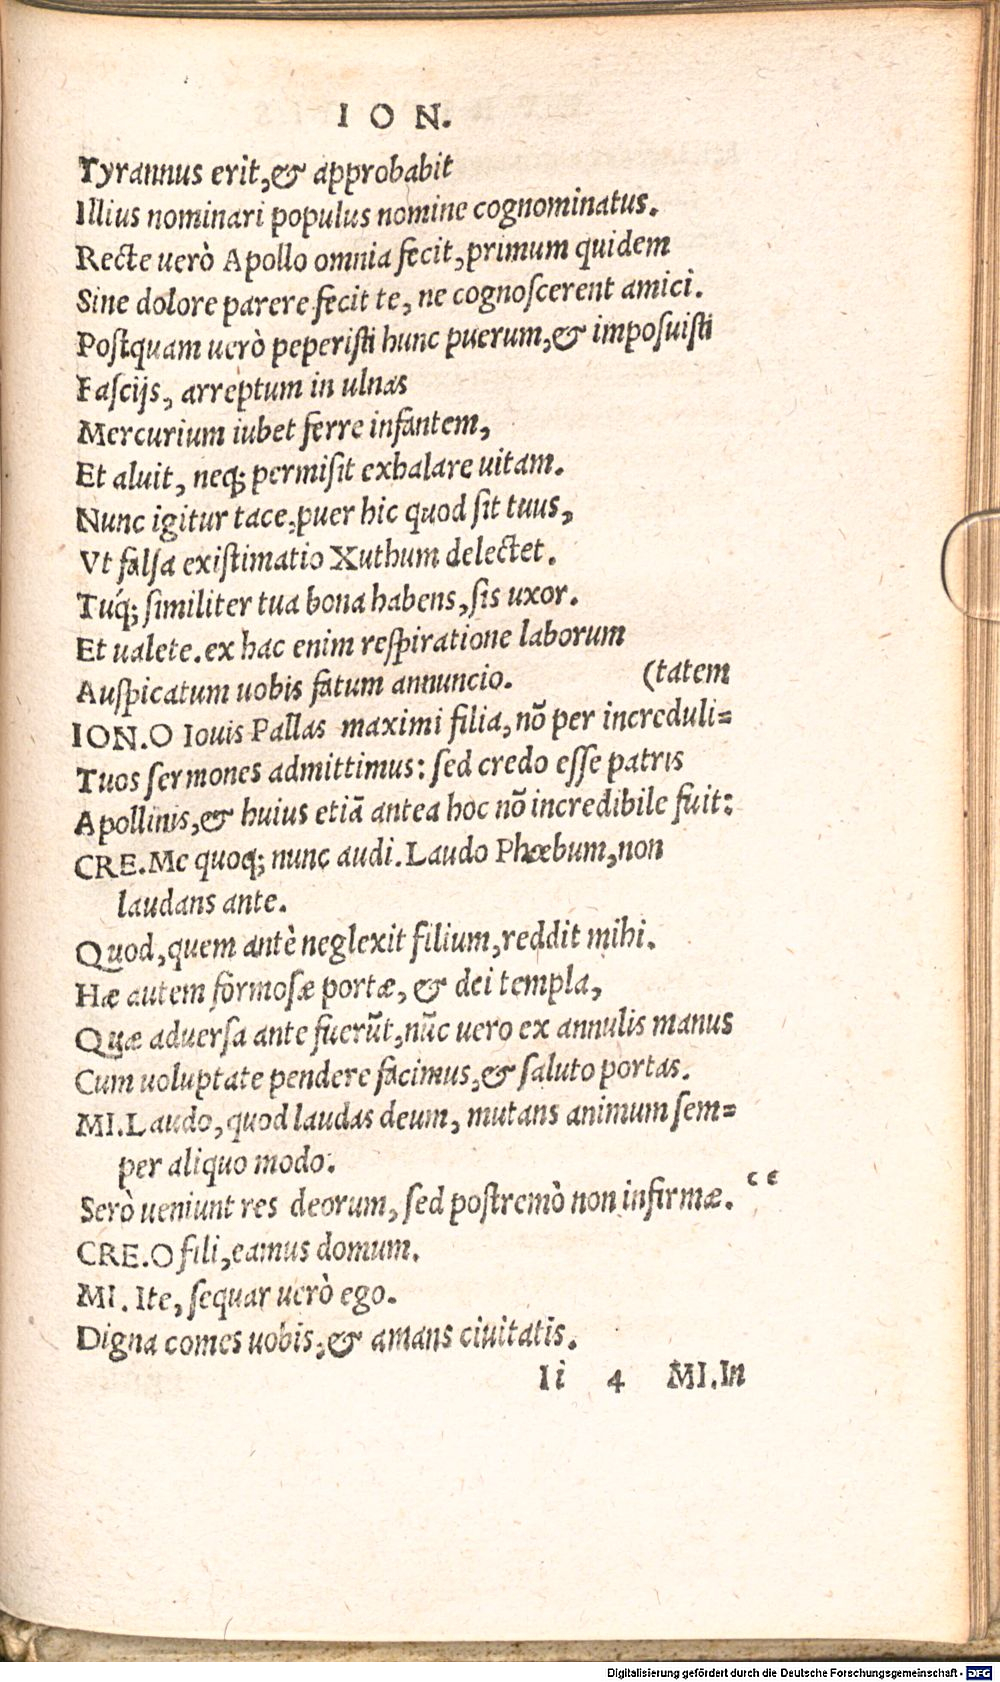 ION.
Tyrannus erit, & approbabit
Illius nominari populus nomine cognominatus.
Recte uerò Apollo omnia fecit, primum quidem
Sine dolore parere fecit te, ne cognoscerent amici.
Postquam uerò peperisti hunc puerum, & imposuisti
Fascijs, arreptum in ulnas
Mercurium iubet ferre infantem,
Et aluit, neq; permisit exhalare uitam.
Nunc igitur tace, puer hic quod sit tuus,
Vt falsa existimatio Xuthum delectet.
Tuq́; similiter tua bona habens, sis uxor.
Et ualete. ex hac enim respiratione laborum
Auspicatum uobis fatum annuncio. (tatem
ION. O Iouis Pallas maximi filia, nō per increduli=
Tuos sermones admittimus: sed credo esse patris
Apollinis, & huius etiā antea hoc nō incredibile fuit:
CRE. Me quoq; nunc audi. Laudo Phœbum, non
laudans ante.
Quod, quem antè neglexit filium, reddit mihi.
Hæ autem formosæ portæ, & dei templa,
Quæ aduersa ante fuerūt, nūc uero ex annulis manus
Cum uoluptate pendere facimus, & saluto portas.
MI. Laudo, quod laudas deum, mutans animum sem=
per aliquo modo.
Serò ueniunt res deorum, sed postremò non infirmæ. "
CRE. O fili, eamus domum.
MI. Ite, sequar uerò ego.
Digna comes uobis, & amans ciuitatis.
Ii 4 MI. In
Digitalisierung gefördert durch die Deutsche Forschungsgemeinschaft - DFG